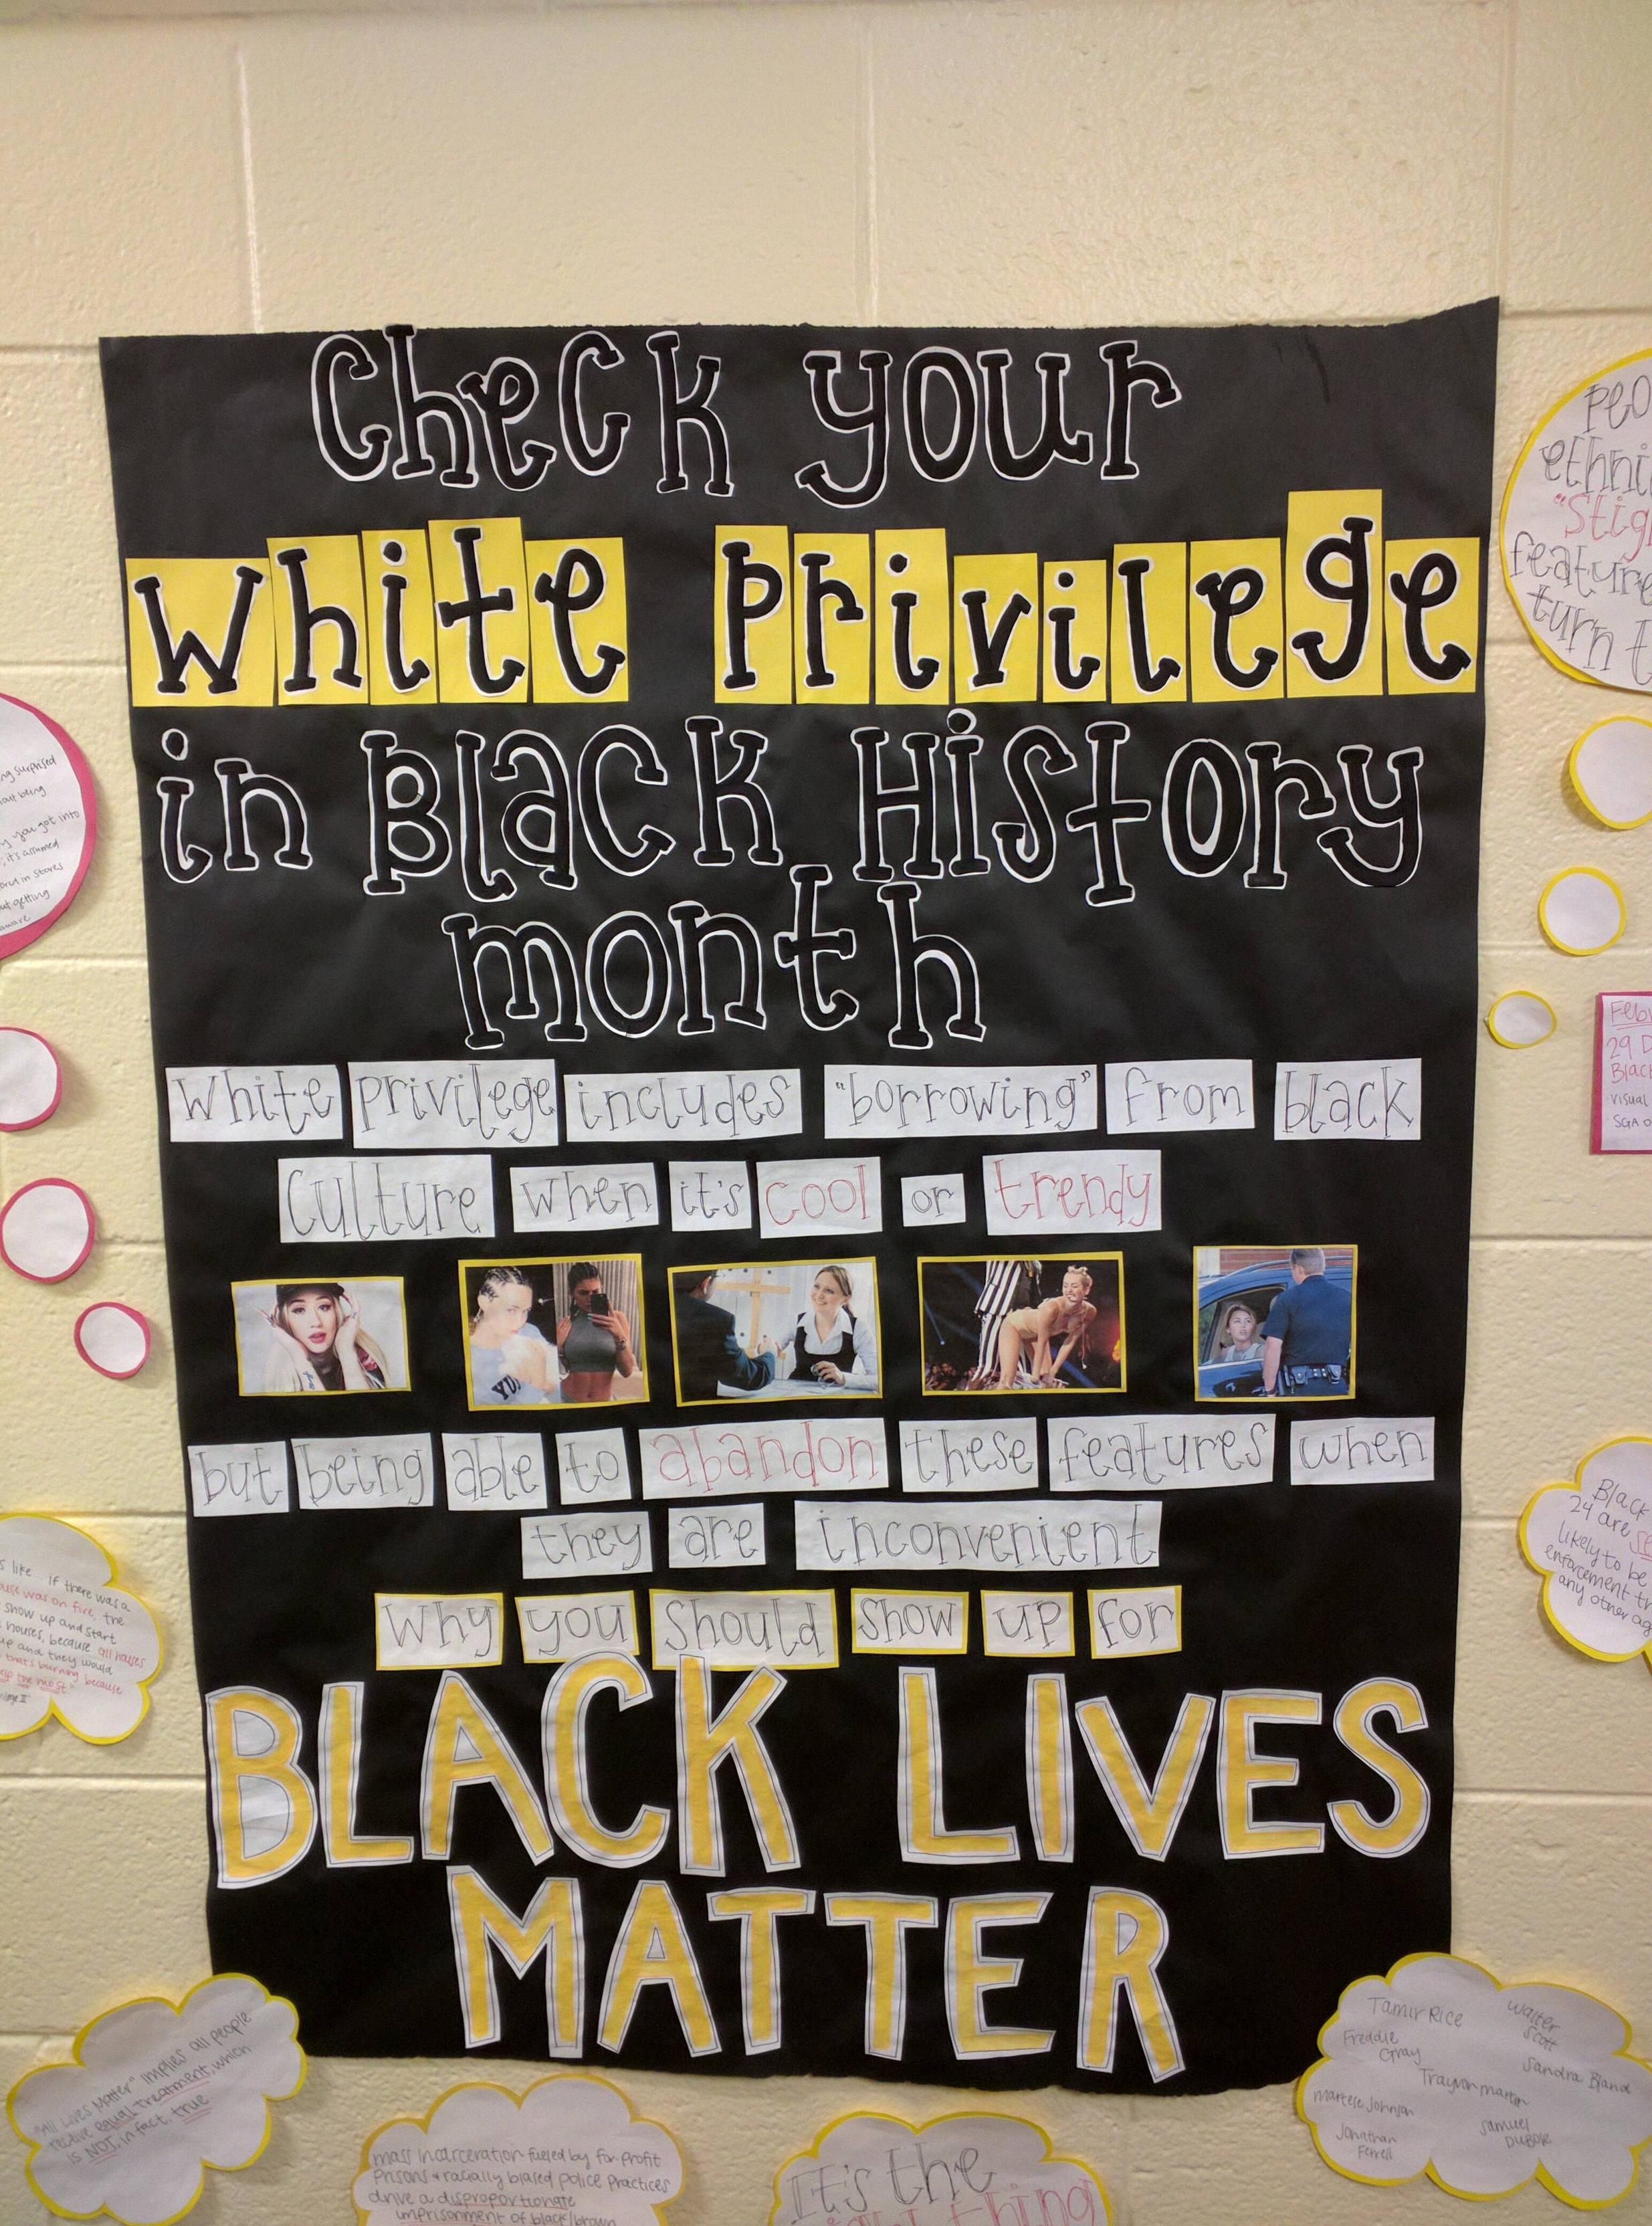 Check your
White Privilege
in Black History
month
White privilege includes "borrowing" from black
culture when it's cool or trendy
YU
but being able to abandon these features when
they are inconvenient
why you should show up for
BLACK LIVES
MATTER
ng surprised
out being
you got into
it's assumed
in stores
getting
aware
s like if there was a
ouse was on fire, the
show up and start
houses, because all houses
up and they would
that's burning because
the most"
ethni
feature
turn
29 D
Black
visual
SGA O
Black
24 are
likely to be
enforcement
any other
"All Lives Matter" implies all people
receive equal treatment, which
is NOT, in fact, true
mass incarceration fueled by for profit
prisons & racially biased police practices
drive a disproportionate
imprisonment of black/brown
It's the
thing
Tamir Rice
Walter
Scott
Freddie
Gray
Sandra Bland
Trayvon Martin
Martese Johnson
Samuel
DuBose
Jonathan
Ferrell